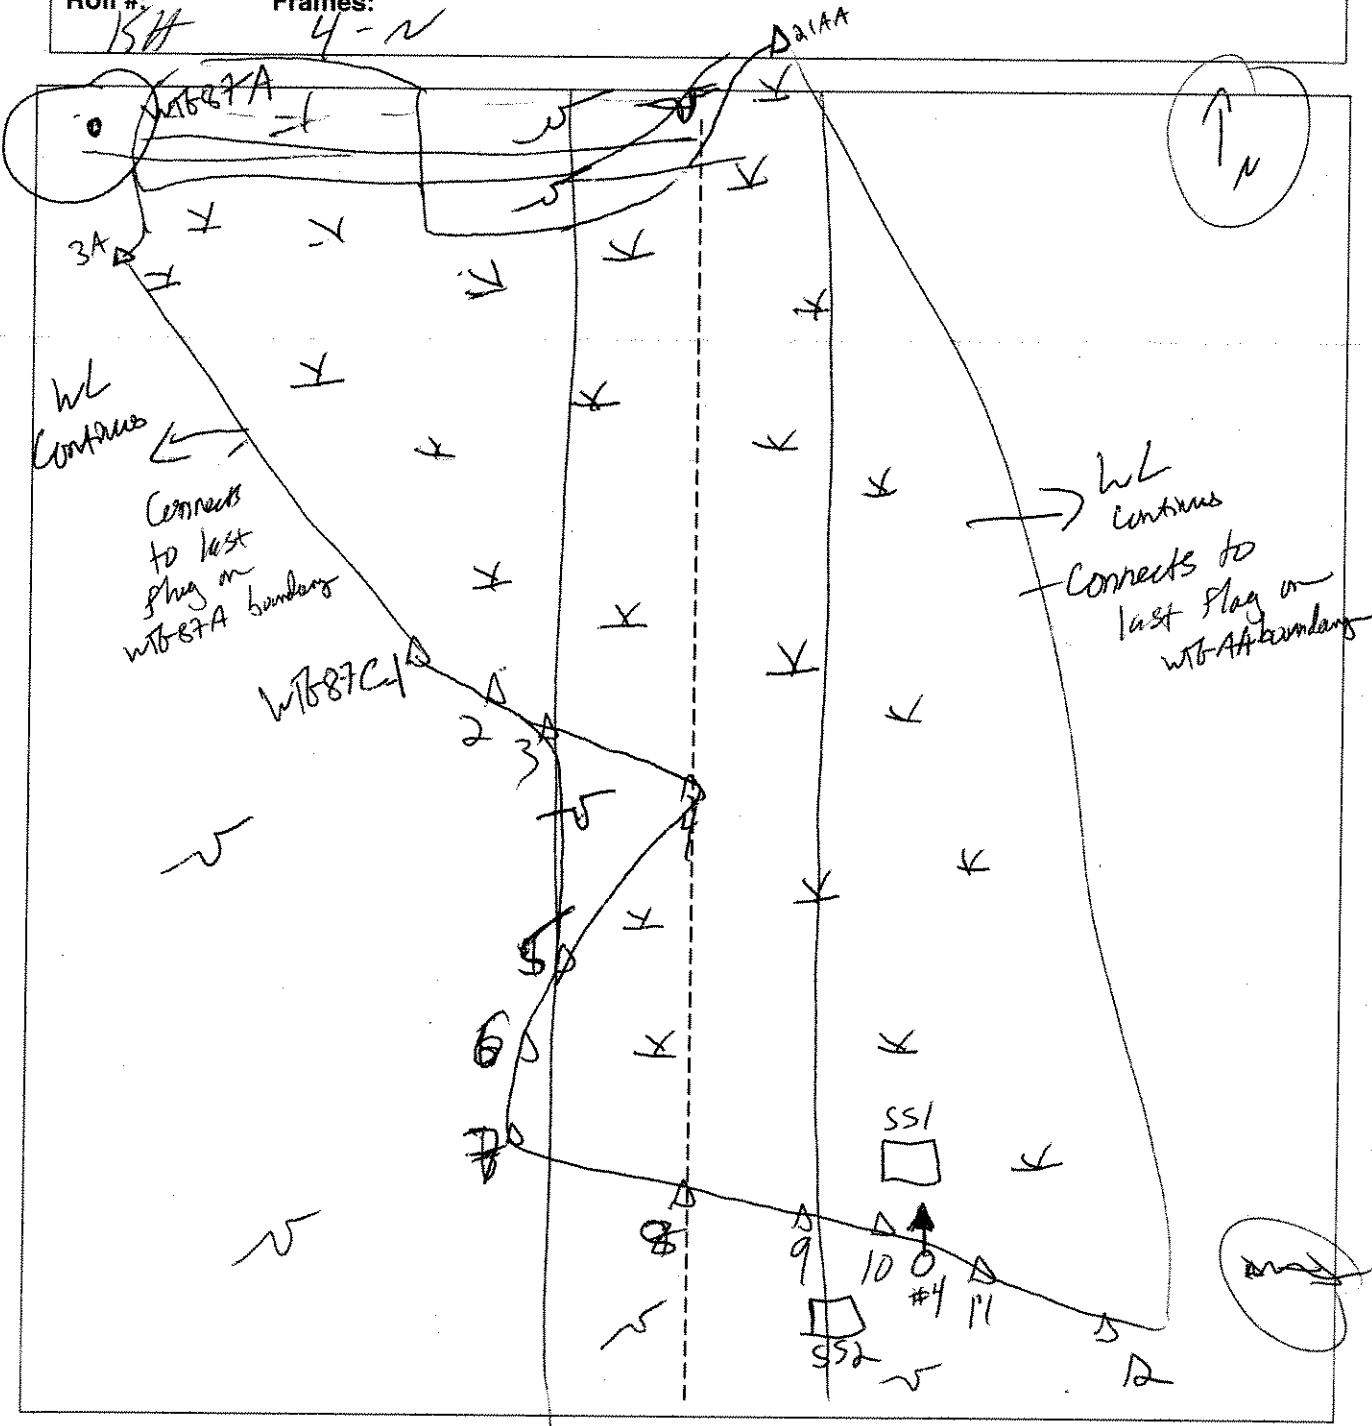 Roll #:
Frames:
15#
4 - N
21AA
WTB87A
N
3A
WL
Continues
Connects
to last
flag on
WTB87A boundary
WL
Continues
Connects to
last flag on
WTB-AA boundary
WTB87C-1
2
3
4
5
6
7
SS1
8
9
10
#4
11
SS2
12